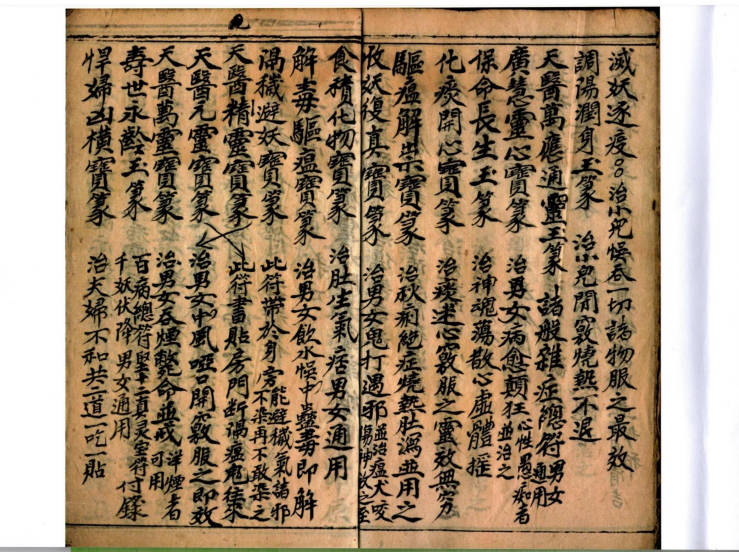 滅妖逐疫。。治小兒悮吞一切諸物服之最效
調陽潤身玉篆 治小兒開竅燒熱不退
天醫萬應通靈玉篆 諸般雜症總符男女通用
廣慧靈心寶篆 治男女病愈顛狂心性愚痴者並治之
保命長生玉篆 治神魂蕩散心虛體搖
化痰開心寶篆 治痰迷心竅服之靈效無穷
驅瘟解祟寶篆 治秋痢絕症燒熱肚瀉並用之
收妖復真寶篆 治男女鬼打遇邪並治瘟犬咬傷神效之至
食積化物寶篆 治肚生氣痞男女通用
解毒驅瘟寶篆 治男女飲水悞中蠱毒即解
滌穢避妖寶篆 此符帶於身旁能避穢氣諸邪不染再不敢染之
天醫精靈寶篆 此符書貼房門断隔瘟鬼往來
天醫元靈寶篆 治男女中風啞口開竅服之即效
天醫萬靈寶篆 治男女吞煙斃命並戒洋煙者可用
壽世永齡玉篆 百病總符聖真灵宝符付錄千妖伏降男女通用
悍婦凶橫寶篆 治夫婦不和共二道一吃一貼